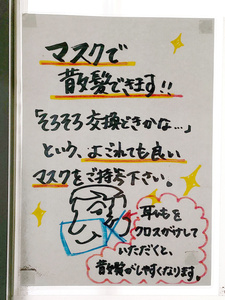 マスクで
散髪できます!!
「そろそろ交換どきかな…」
という、よごれても良い
マスクをご持参下さい。
耳ひもを
クロスがけして
いただくと、
散髪がしやすくなります。